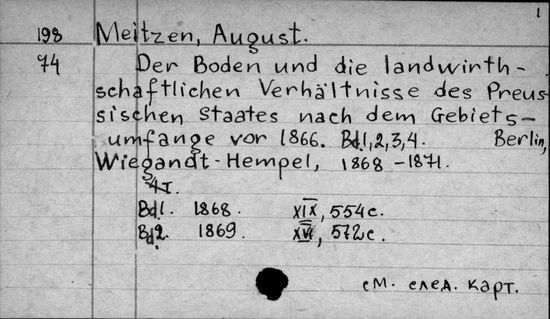 1
198 Meitzen, August.
74 Der Boden und die landwirth-
schaftlichen Verhältnisse des Preus-
sischen Staates nach dem Gebiets-
umfange vor 1866. Bd.1,2,3,4. Berlin,
Wiegandt-Hempel, 1868-1871.
4т.
Bd1. 1868. XIX, 554с.
Bd2. 1869. XVI, 572с.
см. след. карт.